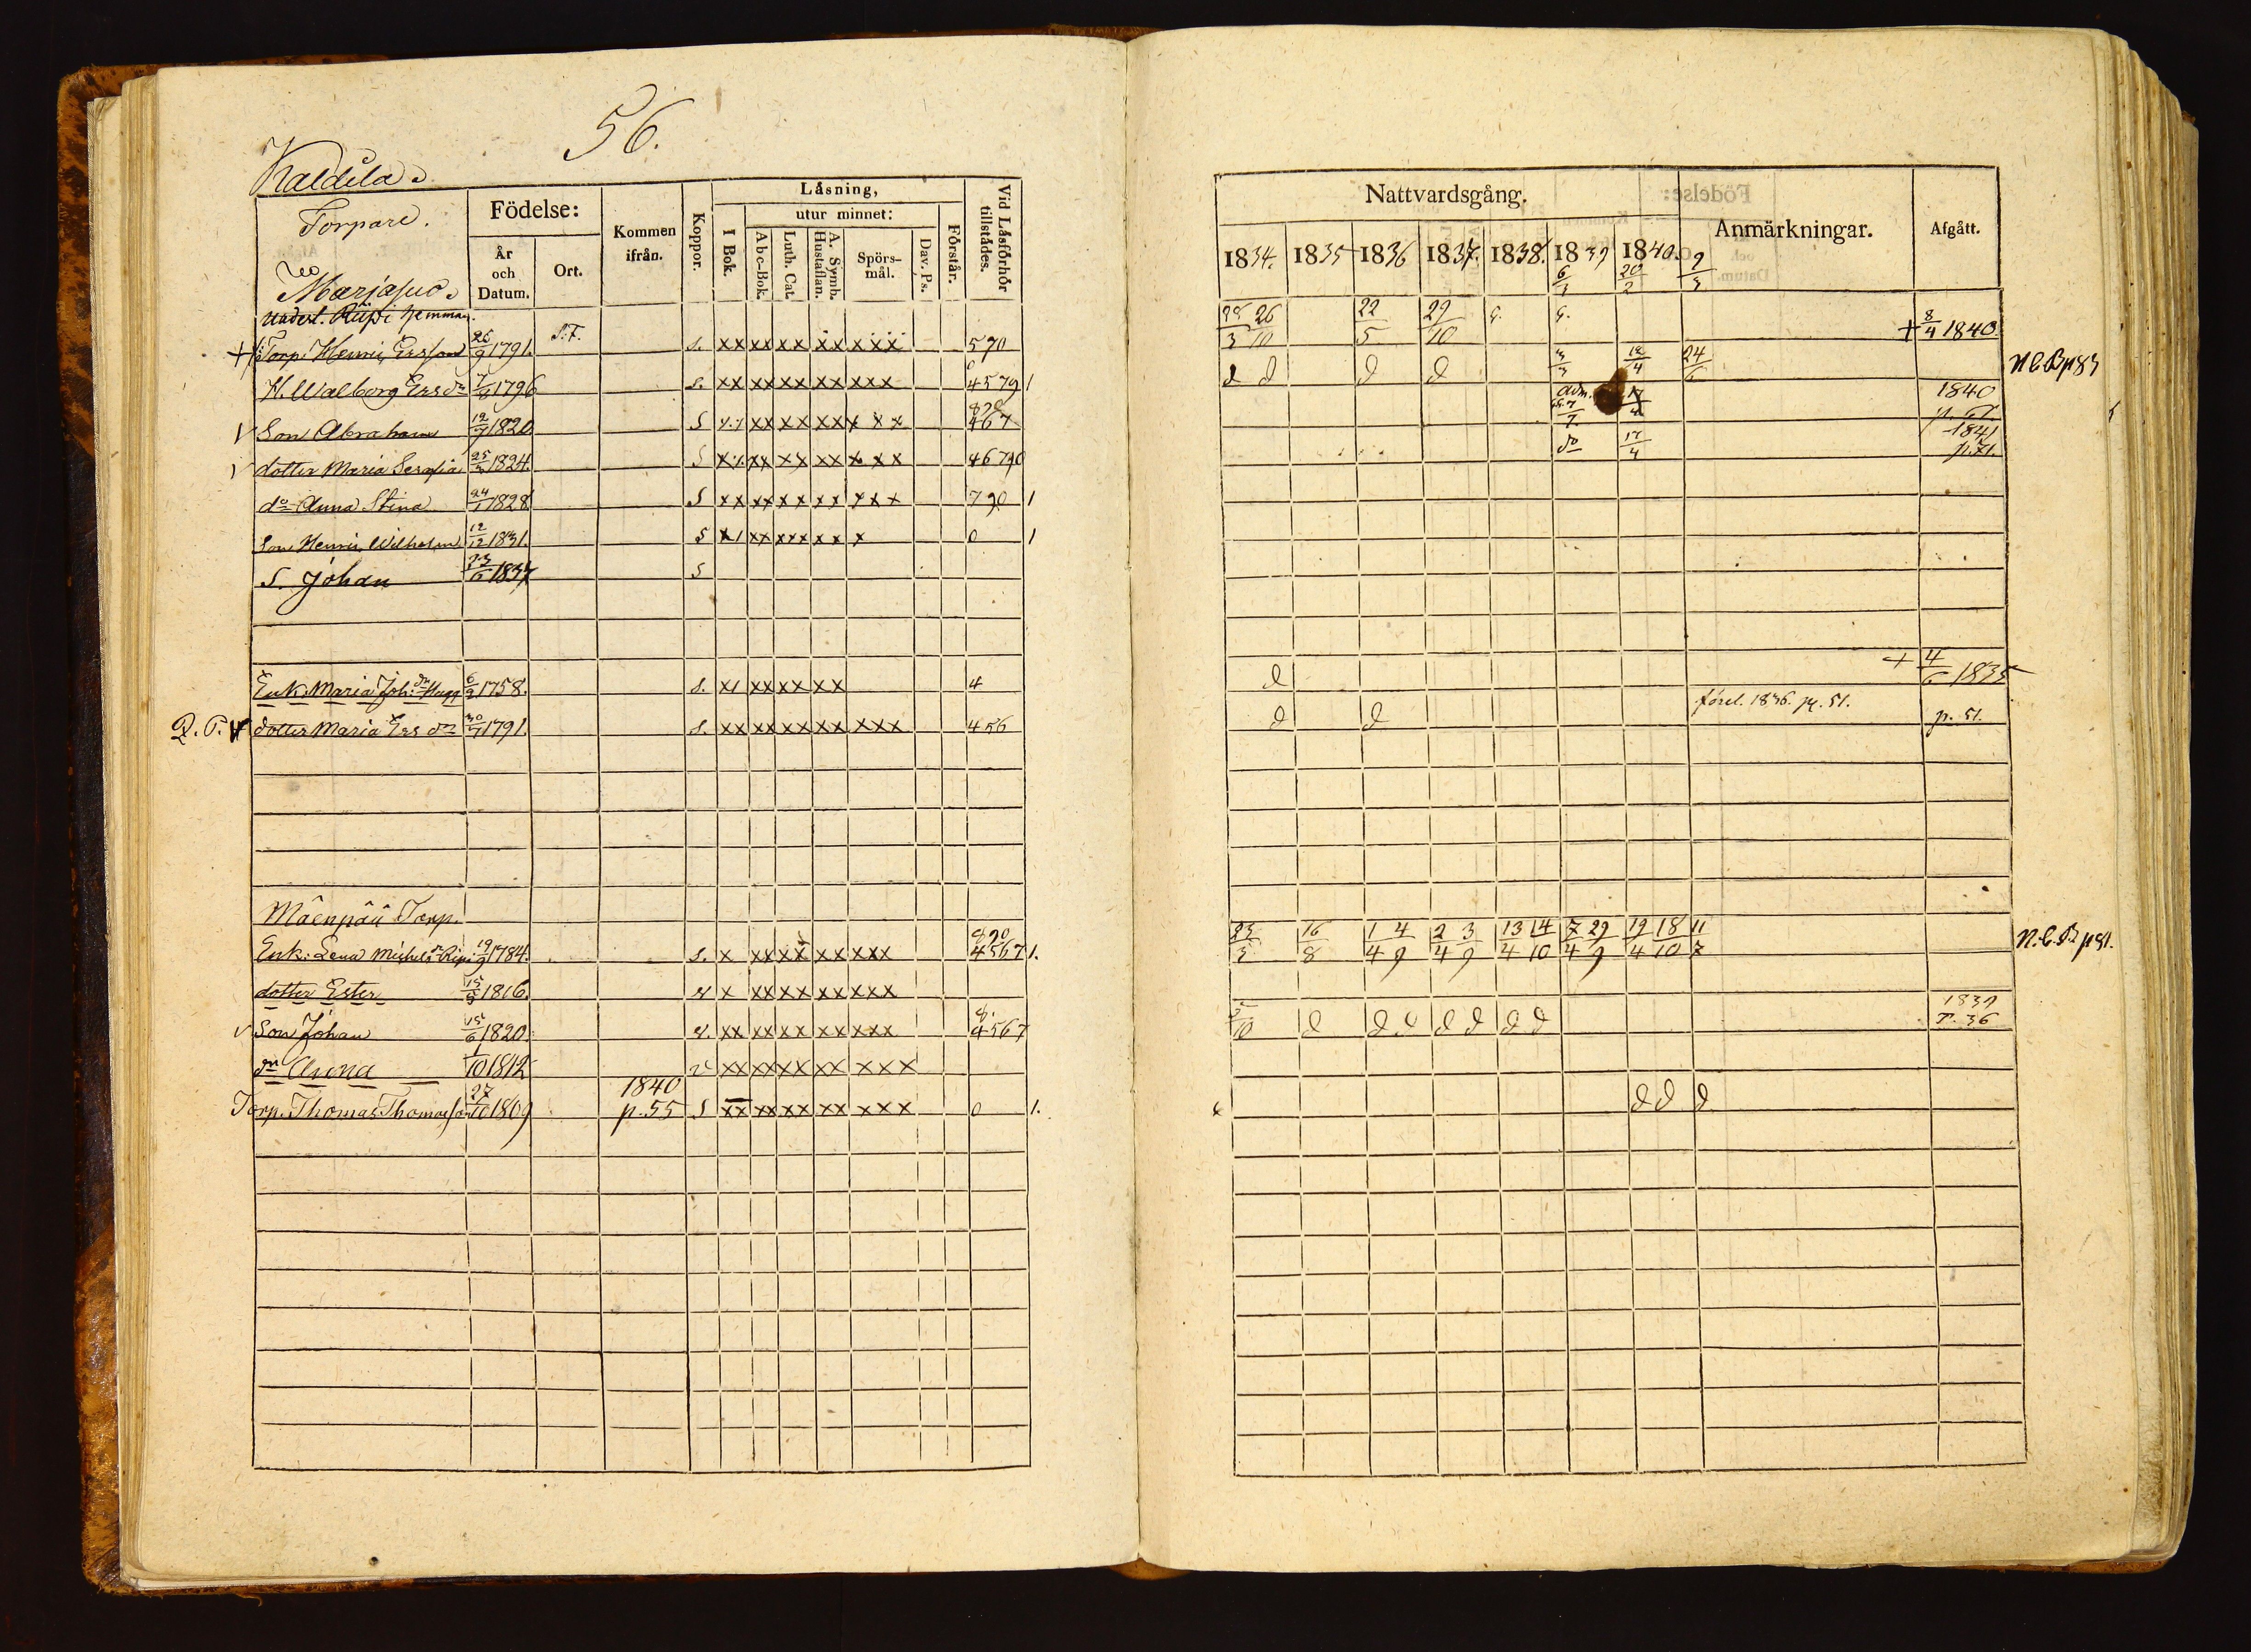 56.
Kaldila
Torpare.
Födelse:
Kommen ifrån.
Koppor.
Låsning,
utur minnet:
Vid Låsförhör tillstådes.
År och Datum.
Ort.
I Bok.
Abc-Bok.
Luth. Cat.
A. Symb. Hustaflan.
Spörs-mål.
Dav. Ps.
Förstår.
Marjasuo.
underl. hemman.
+ Torp. Henric Ersson 26/9 1791. S.F. S. xx xx xx xx xxx 570
H. Walborg Ersdr 7/8 1796 S. xx xx xx xx xxx 4579 1
v Son Abraham 12/7 1820 S xx xx xx x x x 467
v dotter Maria Serafia 1824. S xx xx xx x xx 46790
do Anna Stina 24/1 1828 S xx xx xx xx xxx 790 1
Son Henric Wilhelm 12/12 1831. S x1 xx xxx x x x 0 1
S. Johan 23/6 1837 S
Enk. Maria Joh. dr 6/2 1758. S. x1 xx xx xx 4
dotter Maria Ers dr 30/7 1791. S. xx xx xx xx xxx 456
Mäenpää Torp.
890
Enk: Lena Michels dr 19/9 1784. S. x xx xx xx xxx 4567 1.
dotter Ester 15/9 1816. x xx xx xx xxx
v Son Johan 15/6 1820. xx xx xx xx xxx 4567
dr Anna 1/10 1812 v xx xx xx xx xxx
1840
Torp. Thomas Thomasson 27/10 1809 p. 55 S xx xx xx xx xxx 0 1.
Nattvardsgång.
Anmärkningar.
Afgått.
1834. 1835 1836 1837. 1838. 1839 1840.
6/1 20/2 9/3
26/10 22/5 29/10 + 8/4 1840
d d d d 24/6
1840
Adm. 17/4
1841
do 17/4 p. 71.
d + 4/6 1835
d d förel. 1836. p. 51. p. 51.
23/3 16/8 1/4 4/9 2/4 3/9 13/4 14/10 7/4 29/9 19/4 18/10 11/7 N.C.B p 81.
1839
d d d d d d d p. 36
d d d